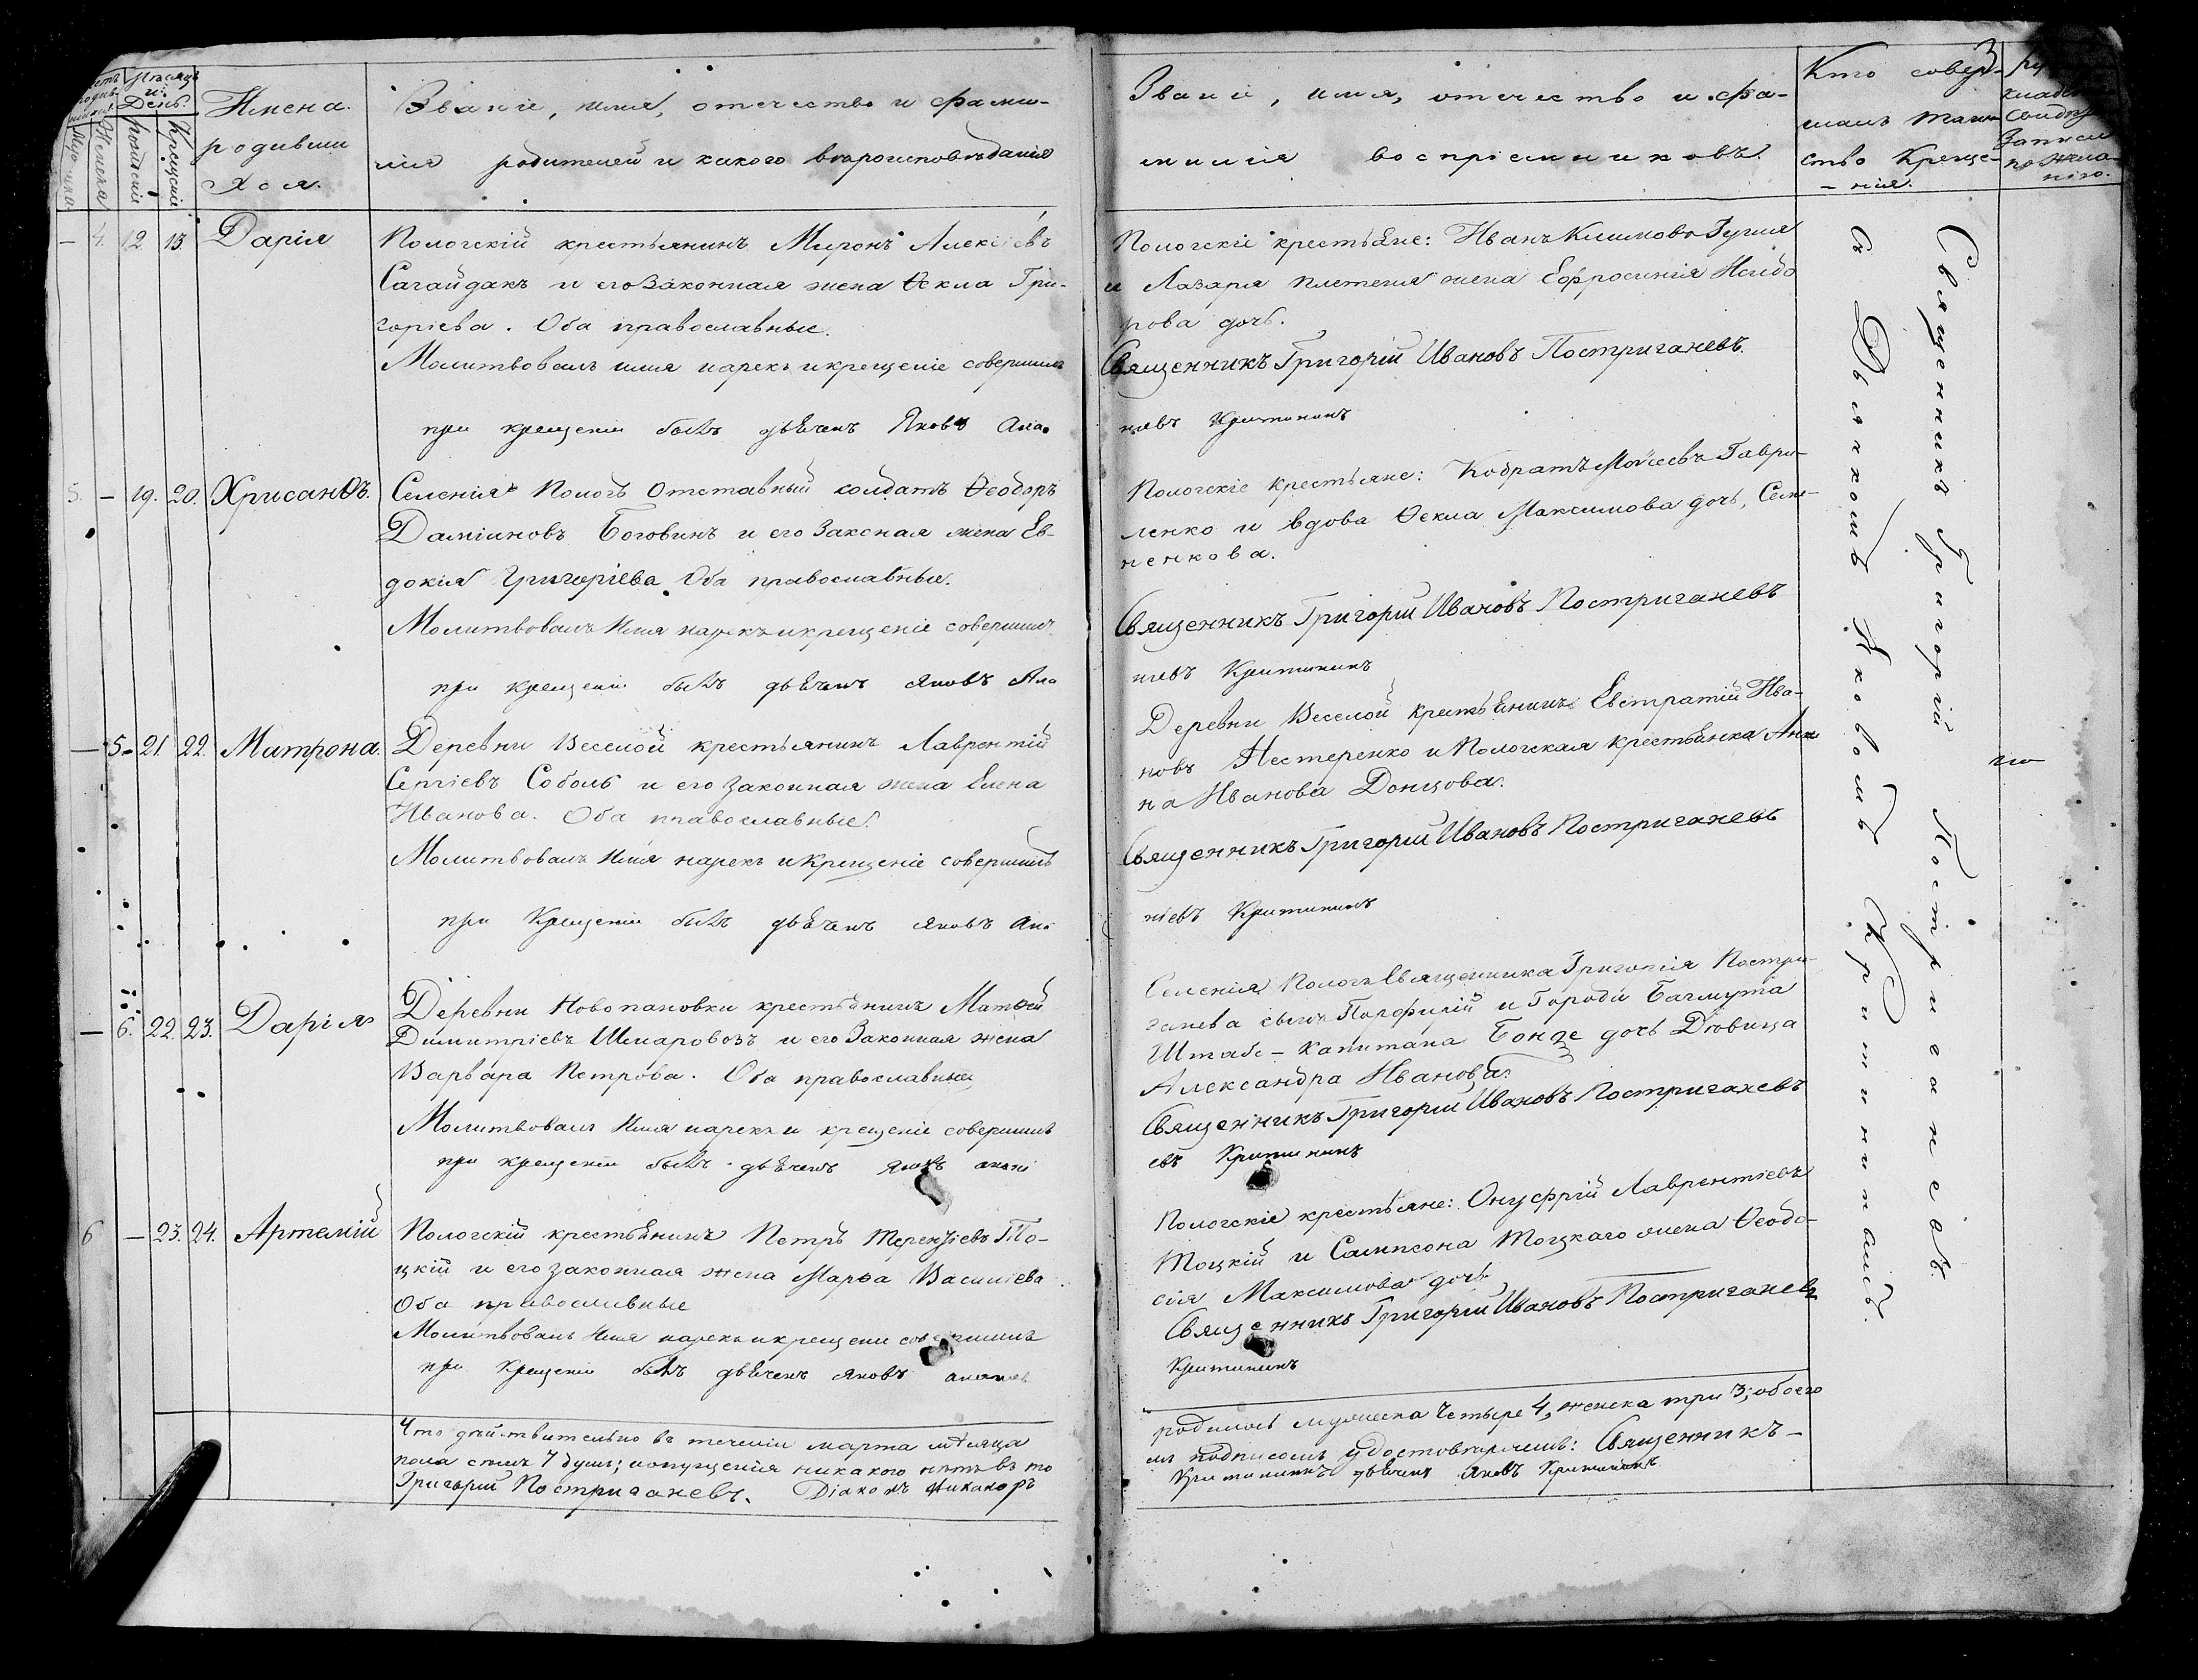 3
Счетъ родив-
шихся.
Мужеска.
Женска
Мѣсяцъ
и
День.
рожденія
Крещенія
Имена
родивши
хся.
Званіе, имя, отечество и фами-
лія родителей и какого вѣроисповѣданія
Званіе, имя, отечество и фа-
милія воспріемниковъ.
Кто совер-
шалъ таин-
ство Креще-
нія.
записи
по жела-
нію.
— 4. 12. 13. Дарія
Пологскій крестьянинъ Миронъ Алексіевъ
Сагайдакъ и его законная жена Ѳекла Гри-
горіева. Оба православные.
Молитвовалъ имя нарекъ и крещеніе совершилъ
при крещеніи былъ дьячекъ Яковъ Ана
Пологскіе крестьяне: Иванъ Климовъ Гупія
и Лазаря Плетеня жена Ефросинія Исидо
рова дочь.
Священникъ Григорій Ивановъ Постригачевъ.
ніевъ Критининъ
5. — 19. 20. Хрисанѳъ.
Селенія Пологъ отставный солдатъ Ѳеодоръ
Даміановъ Боговинъ и его законая жена Ев-
докія Григоріева Оба православные.
Молитвовалъ Имя нарекъ и крещеніе совершилъ
при крещеніи былъ дьячекъ Яковъ Ана
Пологскіе крестьяне: Кодратъ Моісеевъ Гаври-
ленко и вдова Ѳекла Максимова дочь, Семе-
ненкова.
Священникъ Григорій Ивановъ Постригачевъ
ніевъ Критининъ
— 5. 21. 22. Матрона.
Деревни Веселой крестьянинъ Лаврентій
Сергіевъ Соболь и его законная жена Елена
Иванова. Оба православные.
Молитвовалъ Имя нарекъ и крещеніе совершилъ
при Крещеніи былъ дьячекъ Яковъ Ана
Деревни Веселой крестьянинъ Евстратій Ива-
новъ Нестеренко и Пологская крестьянка Ан
на Иванова Донцова.
Священникъ Григорій Ивановъ Постригачевъ
ніевъ Критининъ
— 6. 22. 23. Дарія
Деревни Новопановки крестьянинъ Матѳей
Димитріевъ Шмаровозъ и его Законная жена
Варвара Петрова. Оба православные
Молитвовалъ Имя нарекъ и крещеніе совершилъ
при крещеніи былъ дьячекъ Яковъ анані
Селенія Пологъ Священника Григорія Постри-
гачева сынъ Порфирій и Города Бахмута
Штабс-капитана Бонде дочь Дѣвица
Александра Иванова.
Священникъ Григорій Ивановъ Постригачевъ
евъ Критининъ
6 — 23. 24. Артемій
Пологскій крестьянинъ Петръ Терентіевъ То-
цкій и его законная жена Марѳа Василіева
Оба православные
Молитвовалъ Имя нарекъ и крещеніе совершилъ
при Крещеніи былъ дьячекъ Яковъ ананіевъ
Пологскіе крестьяне: Онуфрій Лаврентіевъ
Тоцкій и Сампсона Тоцкаго жена Ѳеодо-
сія Максимова дочь
Священникъ Григорій Ивановъ Постригачевъ
Критининъ
Священникъ Григорій Постригачевъ.
съ Дьячкомъ Яковомъ Критининымъ.
Что дѣйствительно въ теченіи марта мѣсяца
родилось мужеска четыре 4, женска три 3; обоего
пола сихъ 7 душъ; изпущенія никакого нѣтъ въ то
мъ подписомъ удостовѣряемъ: Священникъ-
Григорій Постригачевъ. Діаконъ Никаноръ
Критининъ дьячекъ Яковъ Критининъ